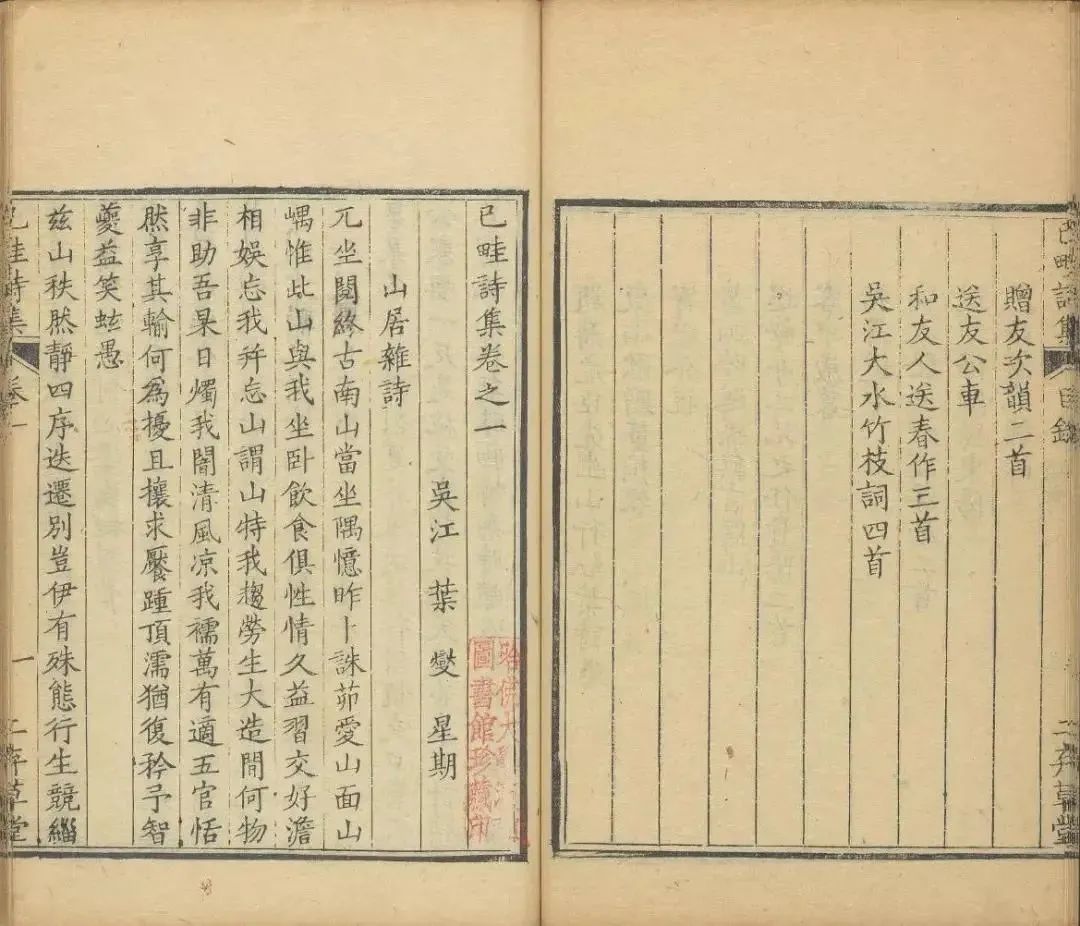 贈友次韻二首
送友公車
和友人送春作三首
吳江大水竹枝詞四首
已畦詩集
目錄
二弃草堂
已畦詩集卷之一
吳江 葉燮 星期
山居雜詩
兀坐閱終古南山當坐隅憶昨卜誅茆愛山面山
嵎惟此山與我坐卧飲食俱性情久益習交好澹
相娱忘我并忘山謂山特我趨勞生大造間何物
非助吾杲日燭我闇清風凉我襦萬有適五官恬
然享其輸何為擾且攘求饜踵頂濡猶復矜予智
夔益笑蚿愚
兹山秩然靜四序迭遷別豈伊有殊態行生競緇
已畦詩集
卷一
一
二弃草堂
哈佛大
圖書館珍藏印